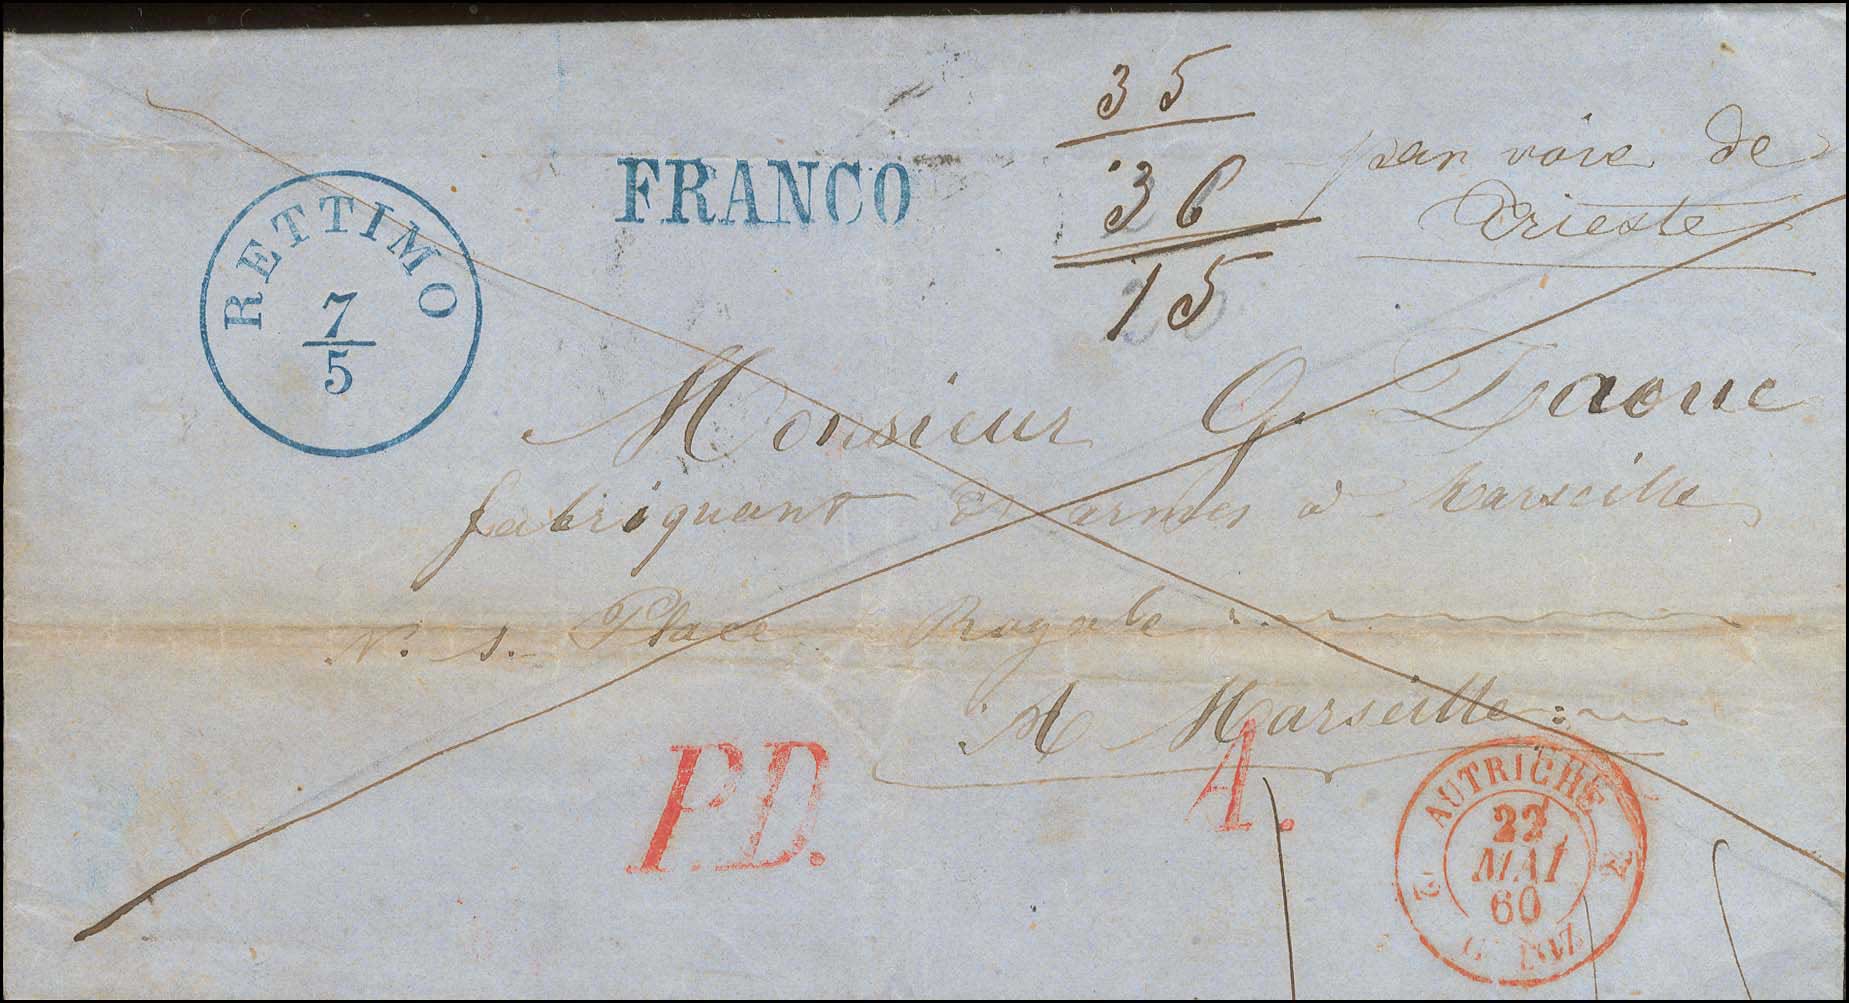 35
FRANCO
36
par voie de
Trieste
RETTIMO
7
5
15
Monsieur G. Zaoue
fabriquant d'armes à Marseille
N: 1. Place Royale
A Marseille:
P.D.
A.
AUTRICHE
22
MAI
60